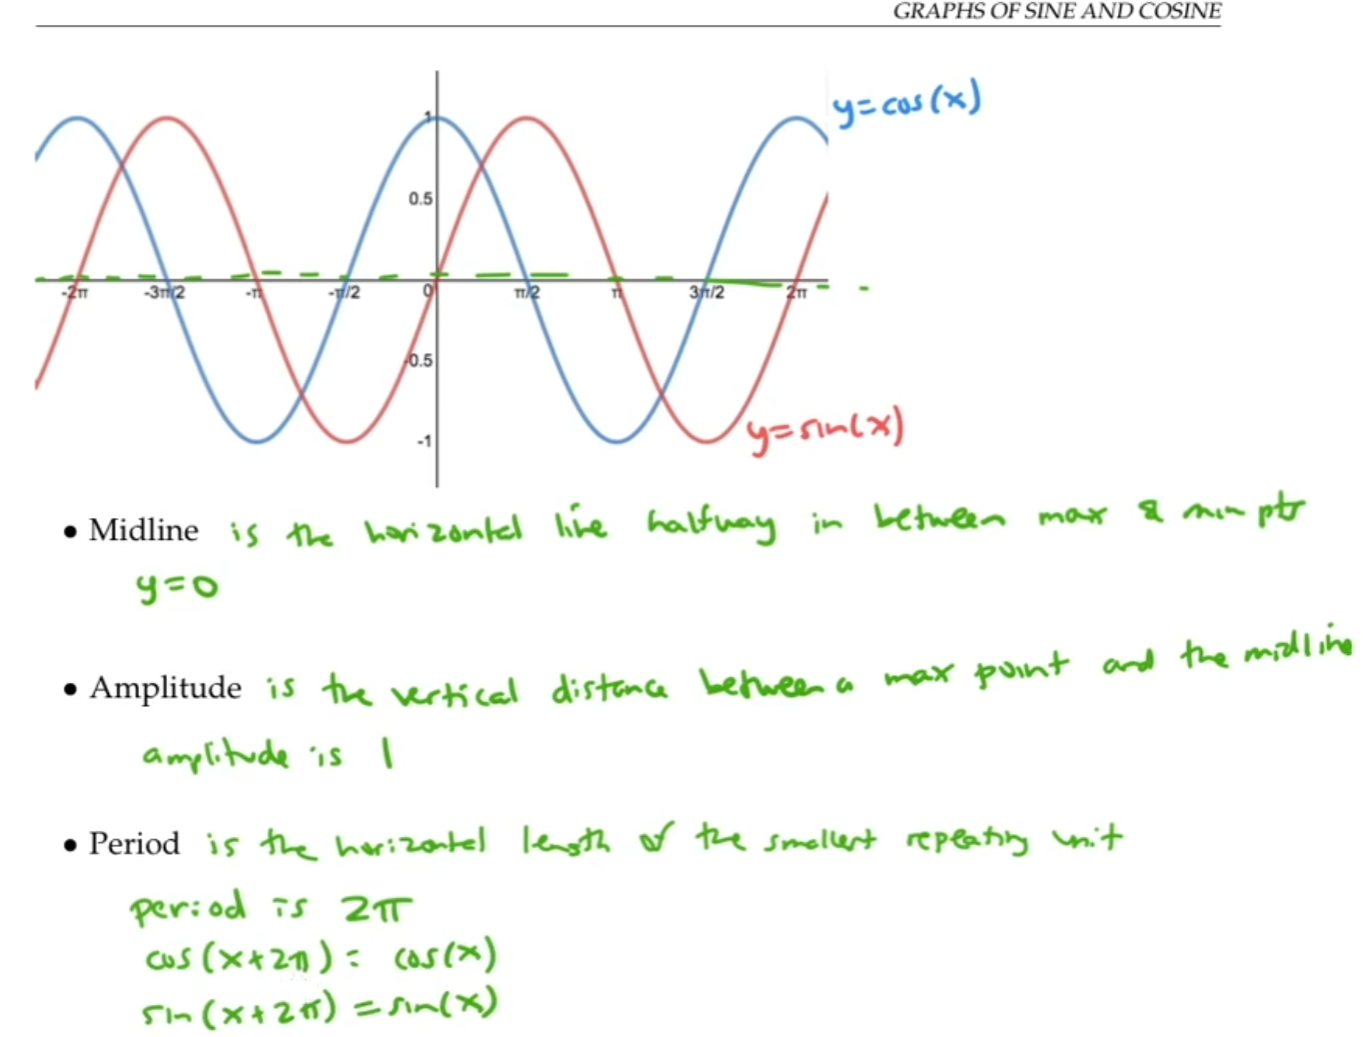 GRAPHS OF SINE AND COSINE
y=cos(x)
1
0.5
-2π -3π/2 -π -π/2 0 π/2 π 3π/2 2π
-0.5
-1
y=sin(x)
• Midline is the horizontal line halfway in between max & min pts
y=0
• Amplitude is the vertical distance between a max point and the midline
amplitude is 1
• Period is the horizontal length of the smallest repeating unit
period is 2π
cos(x+2π) = cos(x)
sin(x+2π) = sin(x)